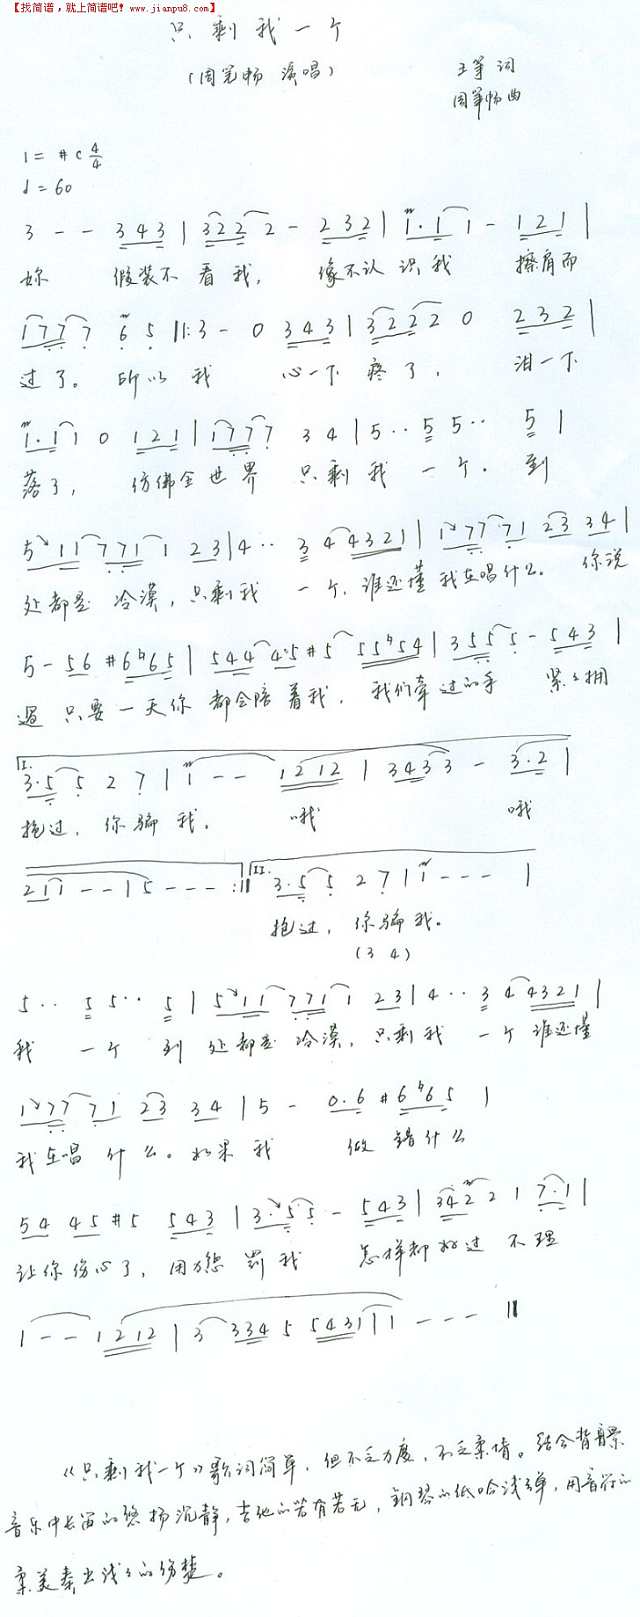 【找简谱，就上简谱吧! www.jianpu8.com】
只剩我一个
(周笔畅 演唱)
王筝 词
周笔畅 曲
1=#C 4/4
♩=60
3 - - 3 4 3 | 3 2 2 2 - 2 3 2 | 1·1 1 - 1 2 1 |
你 假装不看我， 像不认识我 擦肩而
1 7 7 7 6 5 ||: 3 - 0 3 4 3 | 3 2 2 2 0 2 3 2 |
过了。所以我 心一下疼了， 泪一下
1·1 1 0 1 2 1 | 1 7 7 7 3 4 | 5·· 5 5·· 5 |
落了， 仿佛全世界 只剩我一个．到
5 1 1 7 7 1 1 2 3 | 4·· 3 4 4 3 2 1 | 1 7 7 7 1 2 3 3 4 |
处都是冷漠，只剩我 一个．谁还懂我在唱什么。你说
5 - 5 6 #6 ♮6 5 | 5 4 4 4 5 #5 5 5 ♮5 4 | 3 5 5 5 - 5 4 3 |
过 只要一天你都会陪着我． 我们牵过的手 紧紧拥
I. 3·5 5 2 7 | 1 - - 1 2 1 2 | 3 4 3 3 - 3·2 |
抱过．你骗我． 哦 哦
2 1 1 - - | 5 - - - :|| II. 3·5 5 2 7 | 1 - - - |
抱过，你骗我。
(3 4)
5·· 5 5·· 5 | 5 1 1 7 7 1 1 2 3 | 4·· 3 4 4 3 2 1 |
我 一个 到处都是冷漠．只剩我 一个谁还懂
1 7 7 7 1 2 3 3 4 | 5 - 0·6 #6 ♮6 5 |
我在唱什么。如果我 做错什么
5 4 4 5 #5 5 4 3 | 3·5 5 - 5 4 3 | 3 4 2 2 1 7·1 |
让你伤心了，用力怨罚我 怎样都好过不理
1 - - 1 2 1 2 | 3 3 3 4 5 5 4 3 1 | 1 - - - ||
《只剩我一个》歌词简单．但不乏力度，不乏柔情。结合背景
音乐中长笛的悠扬沉静，吉他的若有若无，钢琴的低吟浅弹，用音符的
柔美奏出浅浅的伤楚。